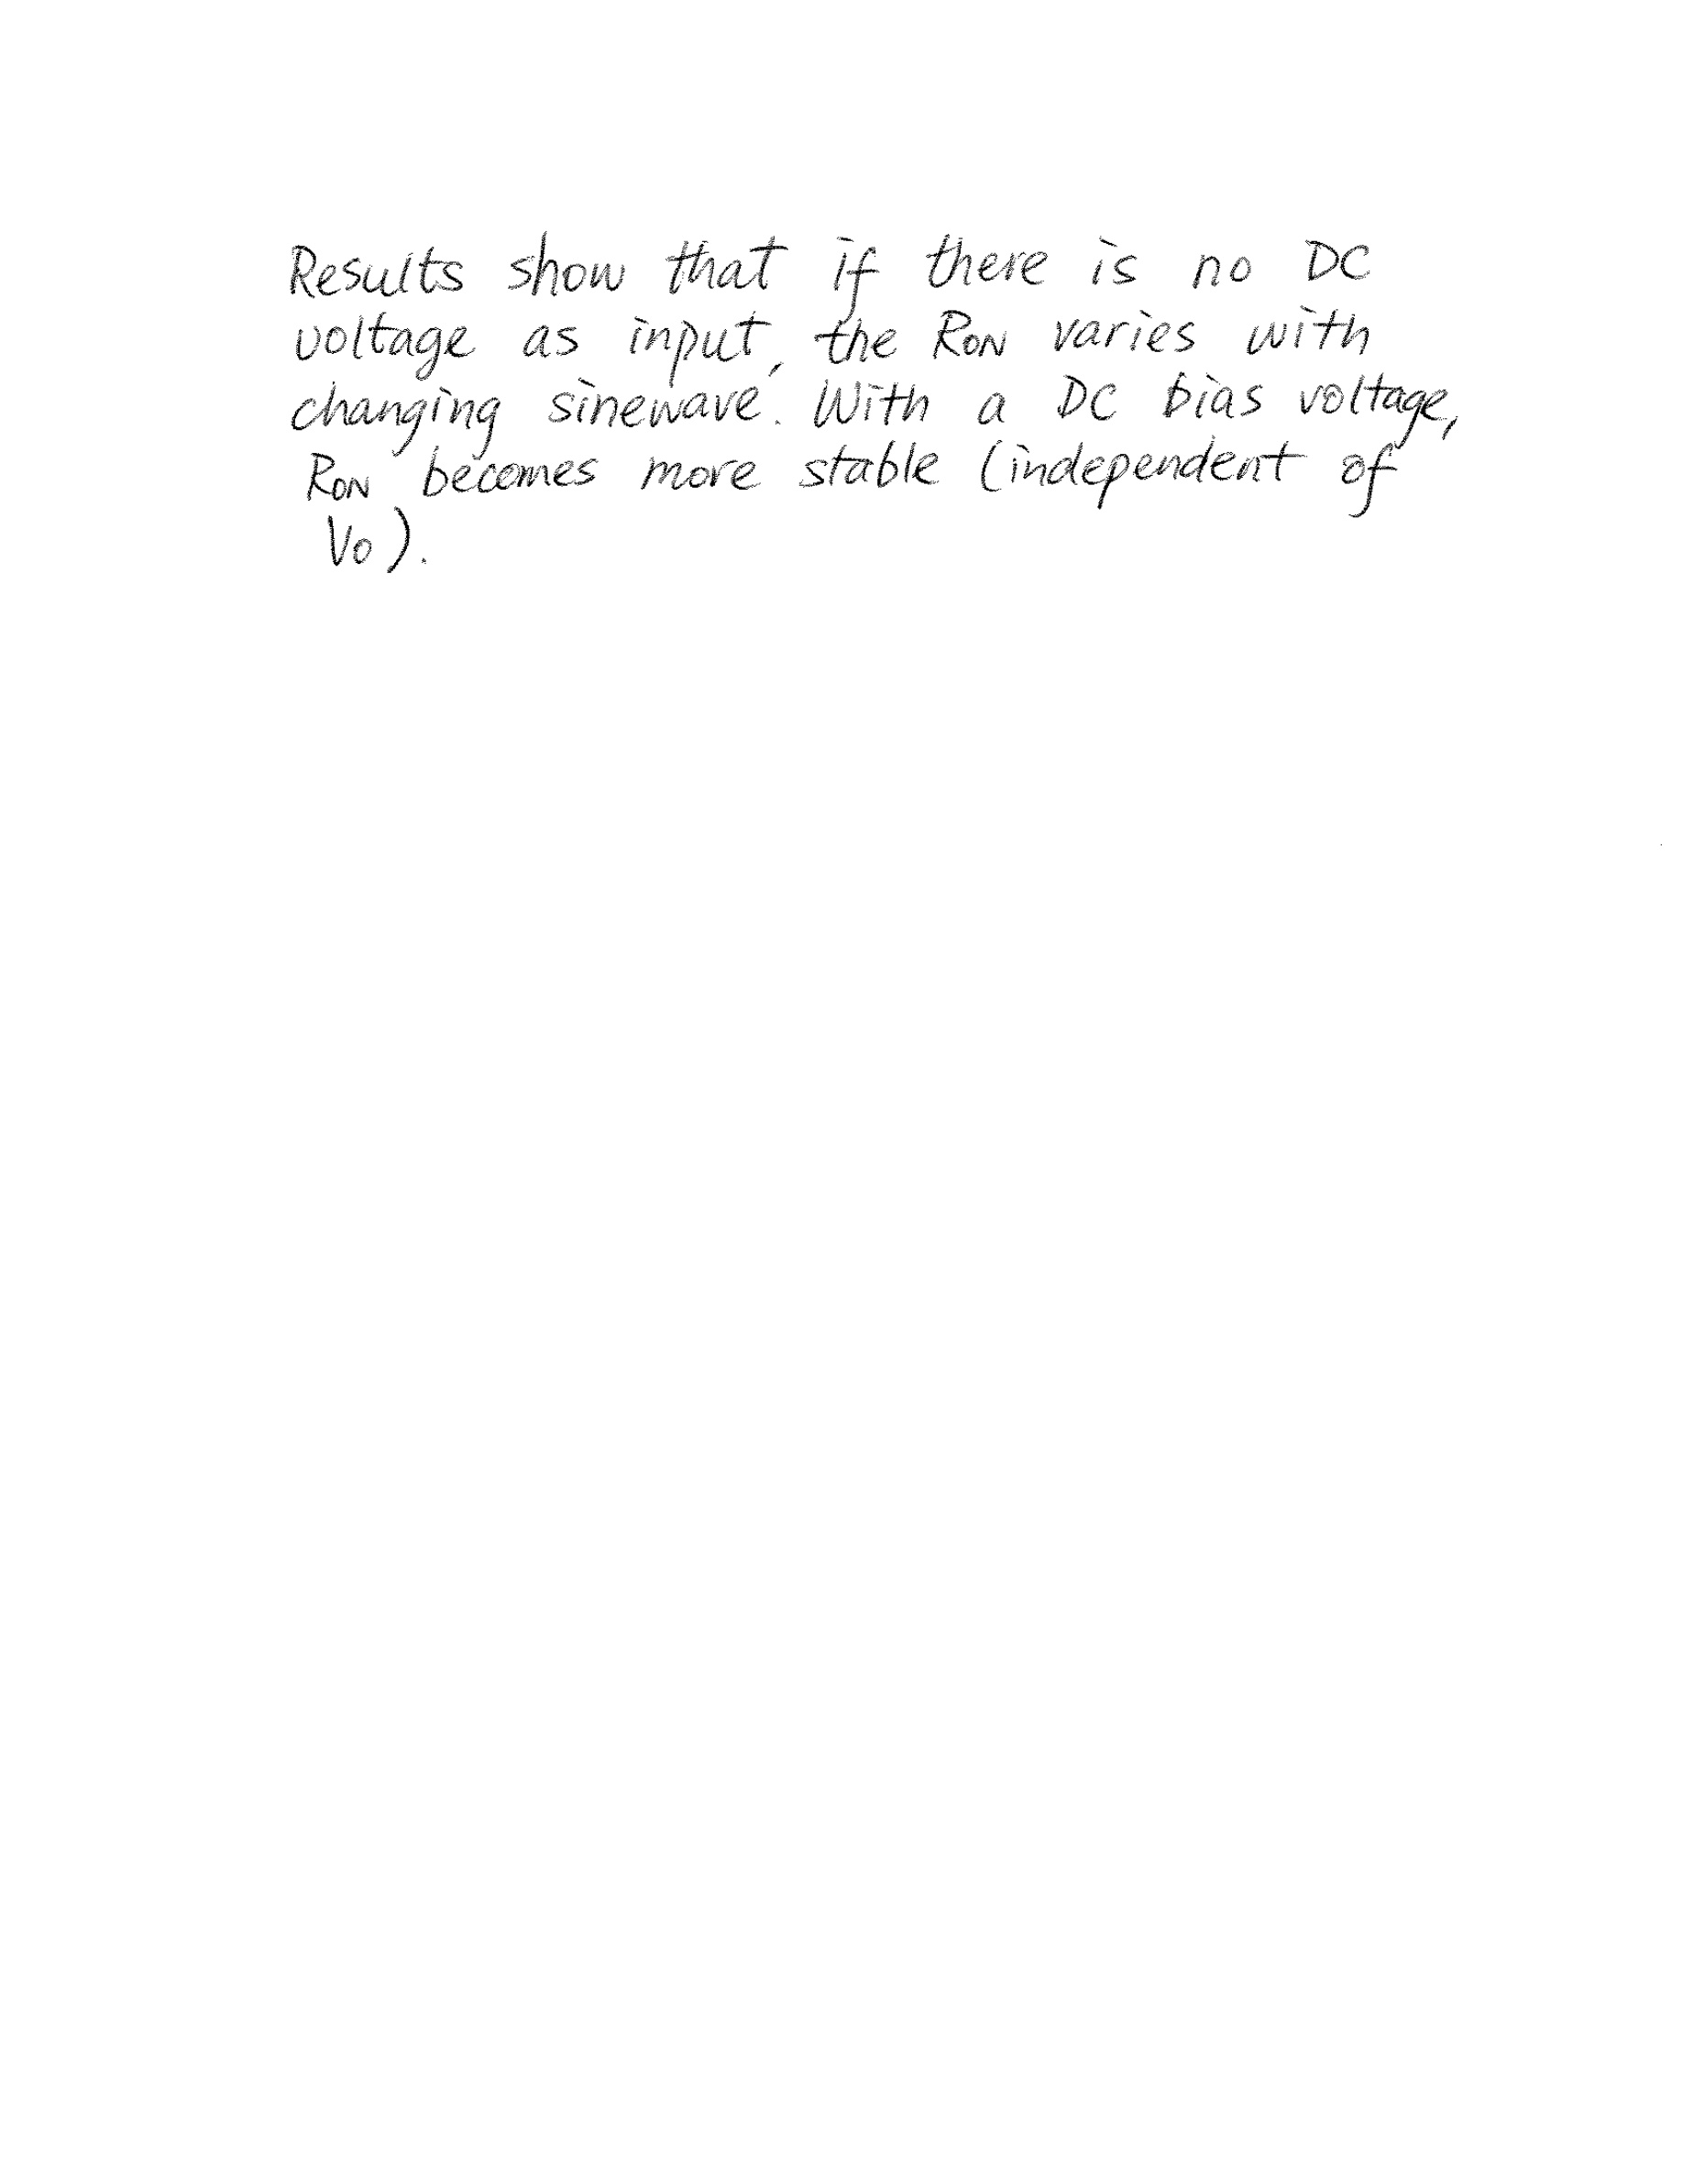 Results show that if there is no DC
voltage as input, the RON varies with
changing sinewave. With a DC bias voltage,
RON becomes more stable (independent of
Vo).